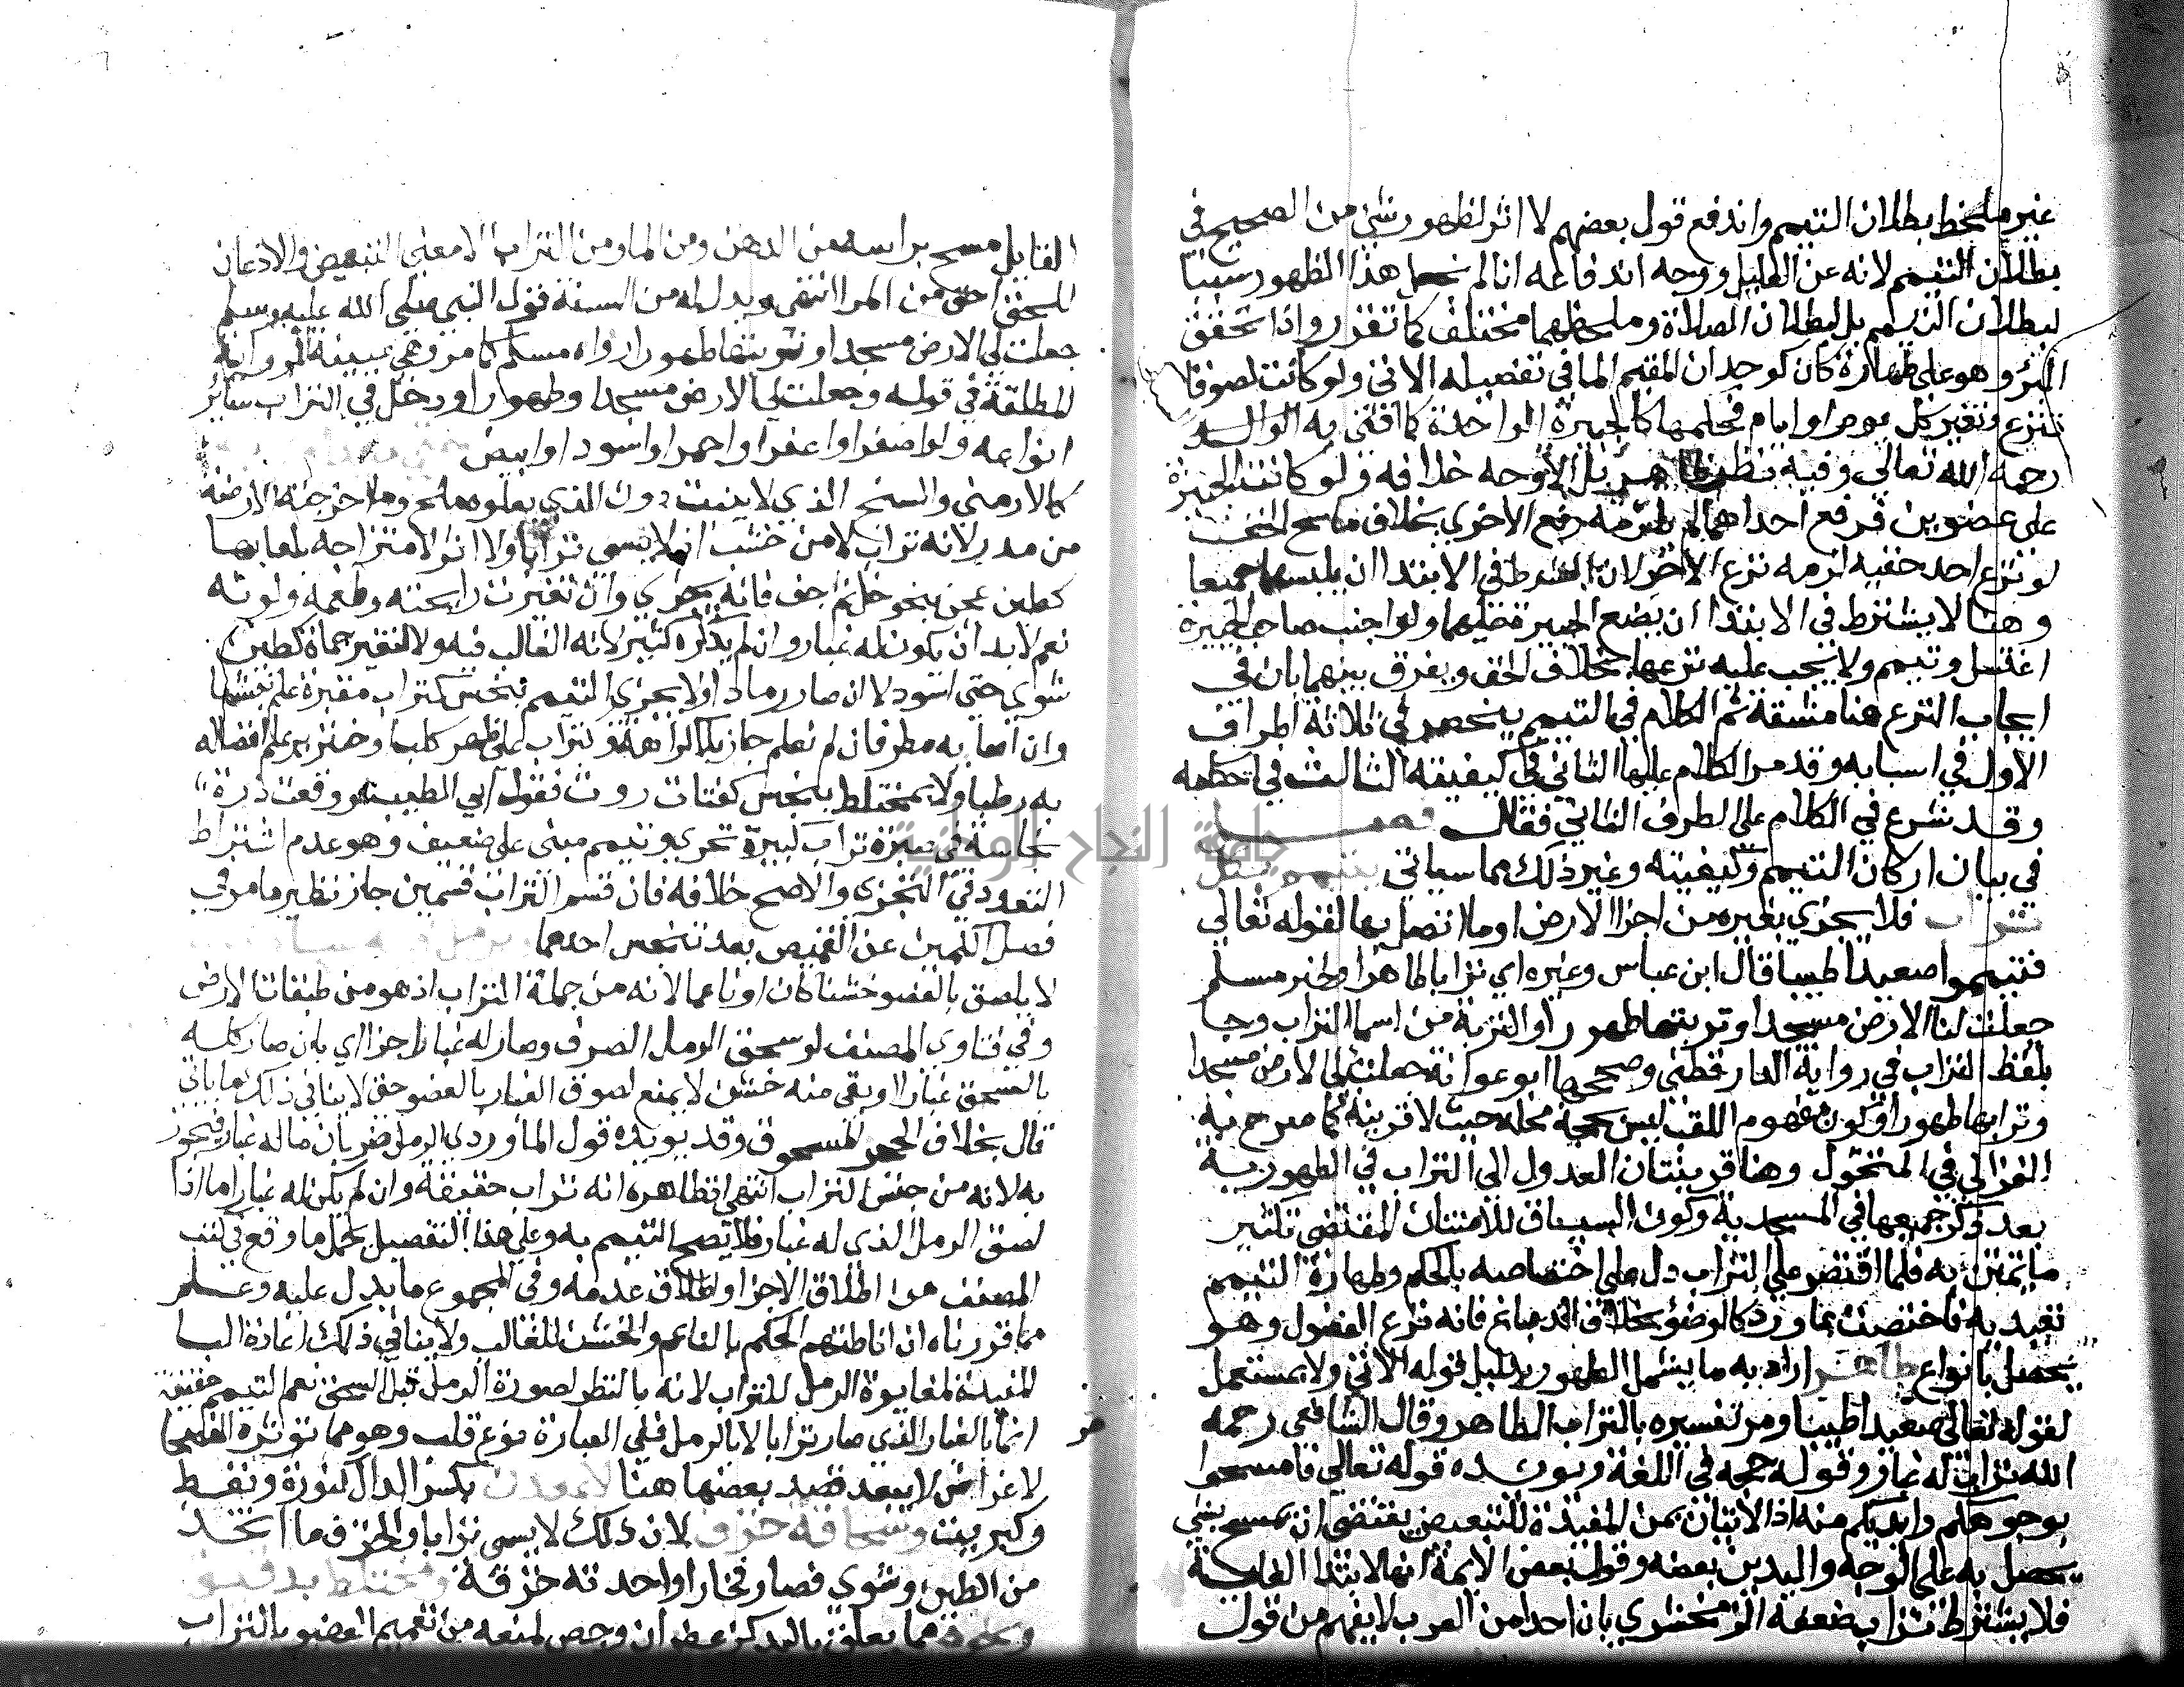 غير ملحظ بطلان التيمم واندفع قول بعضهم لا اثر لظهور شئ من الصحيح في
بطلان التيمم لانه عن العليل ووجه اندفاعه انا لم نجعل هذا الظهور سببا
لبطلان التيمم بل لبطلان الصلاة وملحظهما مختلف كما تقرر واذا تحقق
البرؤ وهو على طهارة كان كوجدان المقيم الما في تفصيله الاتي ولو كانت لصوقا
تنزع وتغير كل يوم او ايام فحكمها كالجبيرة الواحدة كما افتى به الوالد
رحمه الله تعالى وفيه نظر ظاهر بل الاوجه خلافه ولو كانت الجبيرة
على عضوين فرفع احداهما لم يلزمه رفع الاخرى بخلاف ماسح الخف
لو نزع احد خفيه لزمه نزع الاخر لان الشرط في الابتدا ان يلبسهما جميعا
وهنا لا يشترط في الابتدا ان يضع الجبيرة عليهما ولو اجنب صاحب الجبيرة
اغتسل وتيمم ولا يجب عليه نزعها بخلاف الخف ويفرق بينهما بان في
ايجاب النزع هنا مشقة ثم الكلام في التيمم ينحصر في ثلاثة اطراف
الاول في اسبابه وقد مر الكلام عليها الثاني في كيفيته الثالث في احكامه
وقد شرع في الكلام على الطرف الثاني فقال فصل
في بيان اركان التيمم وكيفيته وغير ذلك مما سياتي يتيمم بكل
تراب فلا يجزي بغيره من اجزا الارض او ما اتصل بها لقوله تعالى
فتيمموا صعيدا طيبا قال ابن عباس وغيره اي ترابا طاهرا ولخبر مسلم
جعلت لنا الارض مسجدا وتربتها طهورا والتربة من اسما التراب وجا
بلفظ التراب في رواية الدارقطني وصححها ابو عوانة جعلت لي الارض مسجدا
وترابها طهورا وكون مفهوم اللقب ليس بحجة محله حيث لا قرينة كما صرح به
الغزالي في المنخول وهنا قرينتان العدول الى التراب في الطهورية
بعد ذكر جميعها في المسجدية وكون السياق للامتنان المقتضى تكثير
ما يمتن به فلما اقتصر على التراب دل على اختصاصه بالحكم وطهارة التيمم
تعبدية فاختصت بما ورد كالوضؤ بخلاف الدباغ فانه نزع الفضول وهو
يحصل بانواع طاهر اراد به ما يشمل الطهور بدليل قوله الاتي ولا بمستعمل
لقوله تعالى صعيدا طيبا ومر تفسيره بالتراب الطاهر وقال الشافعي رحمه
الله تراب له غبار وقوله حجة في اللغة ويؤيده قوله تعالى فامسحوا
بوجوهكم وايديكم منه اذ الاتيان بمن المفيدة للتبعيض يقتضى ان يمسح بشي
يحصل به على الوجه واليدين بعضه وقول بعض الايمة انها لابتدا الغاية
فلا يشترط تراب ضعفه الزمخشري بان احدا من العرب لا يفهم من قول
القايل مسح براسه من الدهن ومن الما ومن التراب الا معنى التبعيض والاذعان
للحق احق من المرا انتهى ويدل له من السنة قول النبي صلى الله عليه وسلم
جعلت لي الارض مسجدا وتربتها طهورا رواه مسلم كما مر وهي مبينة للرواية
المطلقة في قوله وجعلت لي الارض مسجدا وطهورا ودخل في التراب ساير
انواعه ولو اصفر او اعفر او احمر او اسود او ابيض
كالارمني والسبخ الذي لا ينبت دون الذي يعلوه ملح وما اخرجته الارضة
من مدر لانه تراب لا من خشب اذ لا يسمى ترابا ولا اثر لامتزاجه بلعابها
كطين عجن بنحو خل ثم جف فانه يجزي وان تغيرت رايحته وطعمه ولونه
نعم لابد ان يكون له غبار وان لم يذكره كثير لانه الغالب فيه ولا لتغير حماة كطين
شوي حتى اسود لا ان صار رمادا ولا يجزى التيمم بنجس كتراب مقبرة علم نبشها
وان اصابه مطر فان لم نعلم جاز بلا كراهة وتراب على ظهر كلب او خنزير علم اتصاله
به رطبا ولا بمختلط بنجس كفتات روث فقول ابي الطيب لو وقعت ذرة
نجاسة في صبرة تراب كبيرة تحرى وتيمم مبني على ضعيف وهو عدم اشتراط
التعدد في التحري والاصح خلافه فان قسم التراب قسمين جاز نظير ما مر في
فصل الكمين عن القميص بعد تنجس احدهما
لا يلصق بالعضو خشنا كان او ناعما لانه من جملة التراب اذ هو من طبقات الارض
وفي فتاوي المصنف لو سحق الرمل الصرف وصار له غبار اجزا اي بان صار كله
بالسحق غبارا او بقي منه خشن لا يمنع لصوق الغبار بالعضو حتى لا ينافي ذلك ما ياتي
قال بخلاف الحجر المسحوق وقد يويده قول الماوردي الرمل ضربان ما له غبار فيجوز
به لانه من جنس التراب انتهى فظاهره انه تراب حقيقة وان لم يكن له غبار اما اذا
لصق الرمل الذي له غبار فلا يصح التيمم به وعلى هذا التفصيل يحمل ما وقع في كتب
المصنف من اطلاق الاجزا واطلاق عدمه وفي المجموع ما يدل عليه وعلم
مما قررناه ان اناطتهم الحكم بالناعم والخشن للغالب ولا ينافي ذلك اعادة البا
المفيدة لمغايرة الرمل للتراب لانه بالنظر لصورة الرمل قبل السحق نعم التيمم حقيقة
انما بالغبار الذي صار ترابا لا بالرمل ففي العبارة نوع قلب وهو مما تؤثره الفصحا
لاغراض لا يبعد قصد بعضها هنا لا بمعدن بكسر الدال كنورة ونفط
وكبريت وسحاقة خزف لان ذلك لا يسمى ترابا والخزف ما اتخذ
من الطين وشوي فصار فخارا واحدته خزفة ومختلط بدقيق
ونحوه مما يعلق باليد كزعفران وجص لمنعه من تعميم العضو بالتراب
جامعة النجاح الوطنية